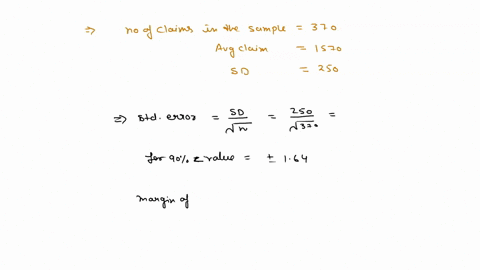 ⇒ no of claims in the sample = 370
Avg claim = 1570
SD = 250
⇒ Std. error = SD/√n = 250/√370 =
for 90% z value = ± 1.64
margin of